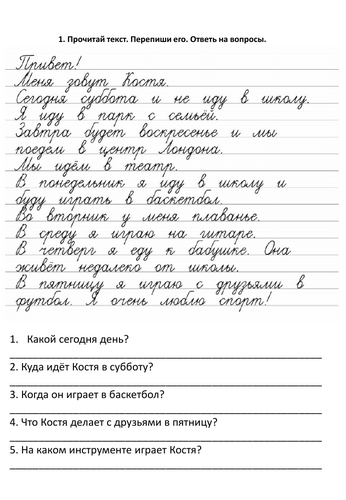 1. Прочитай текст. Перепиши его. Ответь на вопросы.
Привет!
Меня зовут Костя.
Сегодня суббота и не иду в школу.
Я иду в парк с семьёй.
Завтра будет воскресенье и мы
поедем в центр Лондона.
Мы идём в театр.
В понедельник я иду в школу и
буду играть в баскетбол.
Во вторник у меня плаванье.
В среду я играю на гитаре.
В четверг я еду к бабушке. Она
живёт недалеко от школы.
В пятницу я играю с друзьями в
футбол. Я очень люблю спорт!
1. Какой сегодня день?
2. Куда идёт Костя в субботу?
3. Когда он играет в баскетбол?
4. Что Костя делает с друзьями в пятницу?
5. На каком инструменте играет Костя?